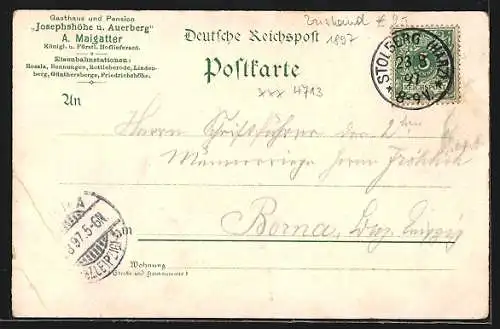 Gasthaus und Pension
"Josephshöhe u. Auerberg"
A. Maigatter
Königl. u. Fürstl. Hoflieferant.
Eisenbahnstationen:
Rossla, Bennungen, Rottleberode, Linden-
berg, Günthersberge, Friedrichshöhe.
1897
Deutsche Reichspost
Postkarte
xxx 4713
STOLBERG (HARZ)
23 8
97
8-9V.
An
Herrn Schriftführer des 2ten
Männerriege Herrn Fröhlich
in
Borna, Bez. Leipzig
97.5-6N
(BZ.LEIPZIG)
Wohnung
(Straße und Hausnummer)